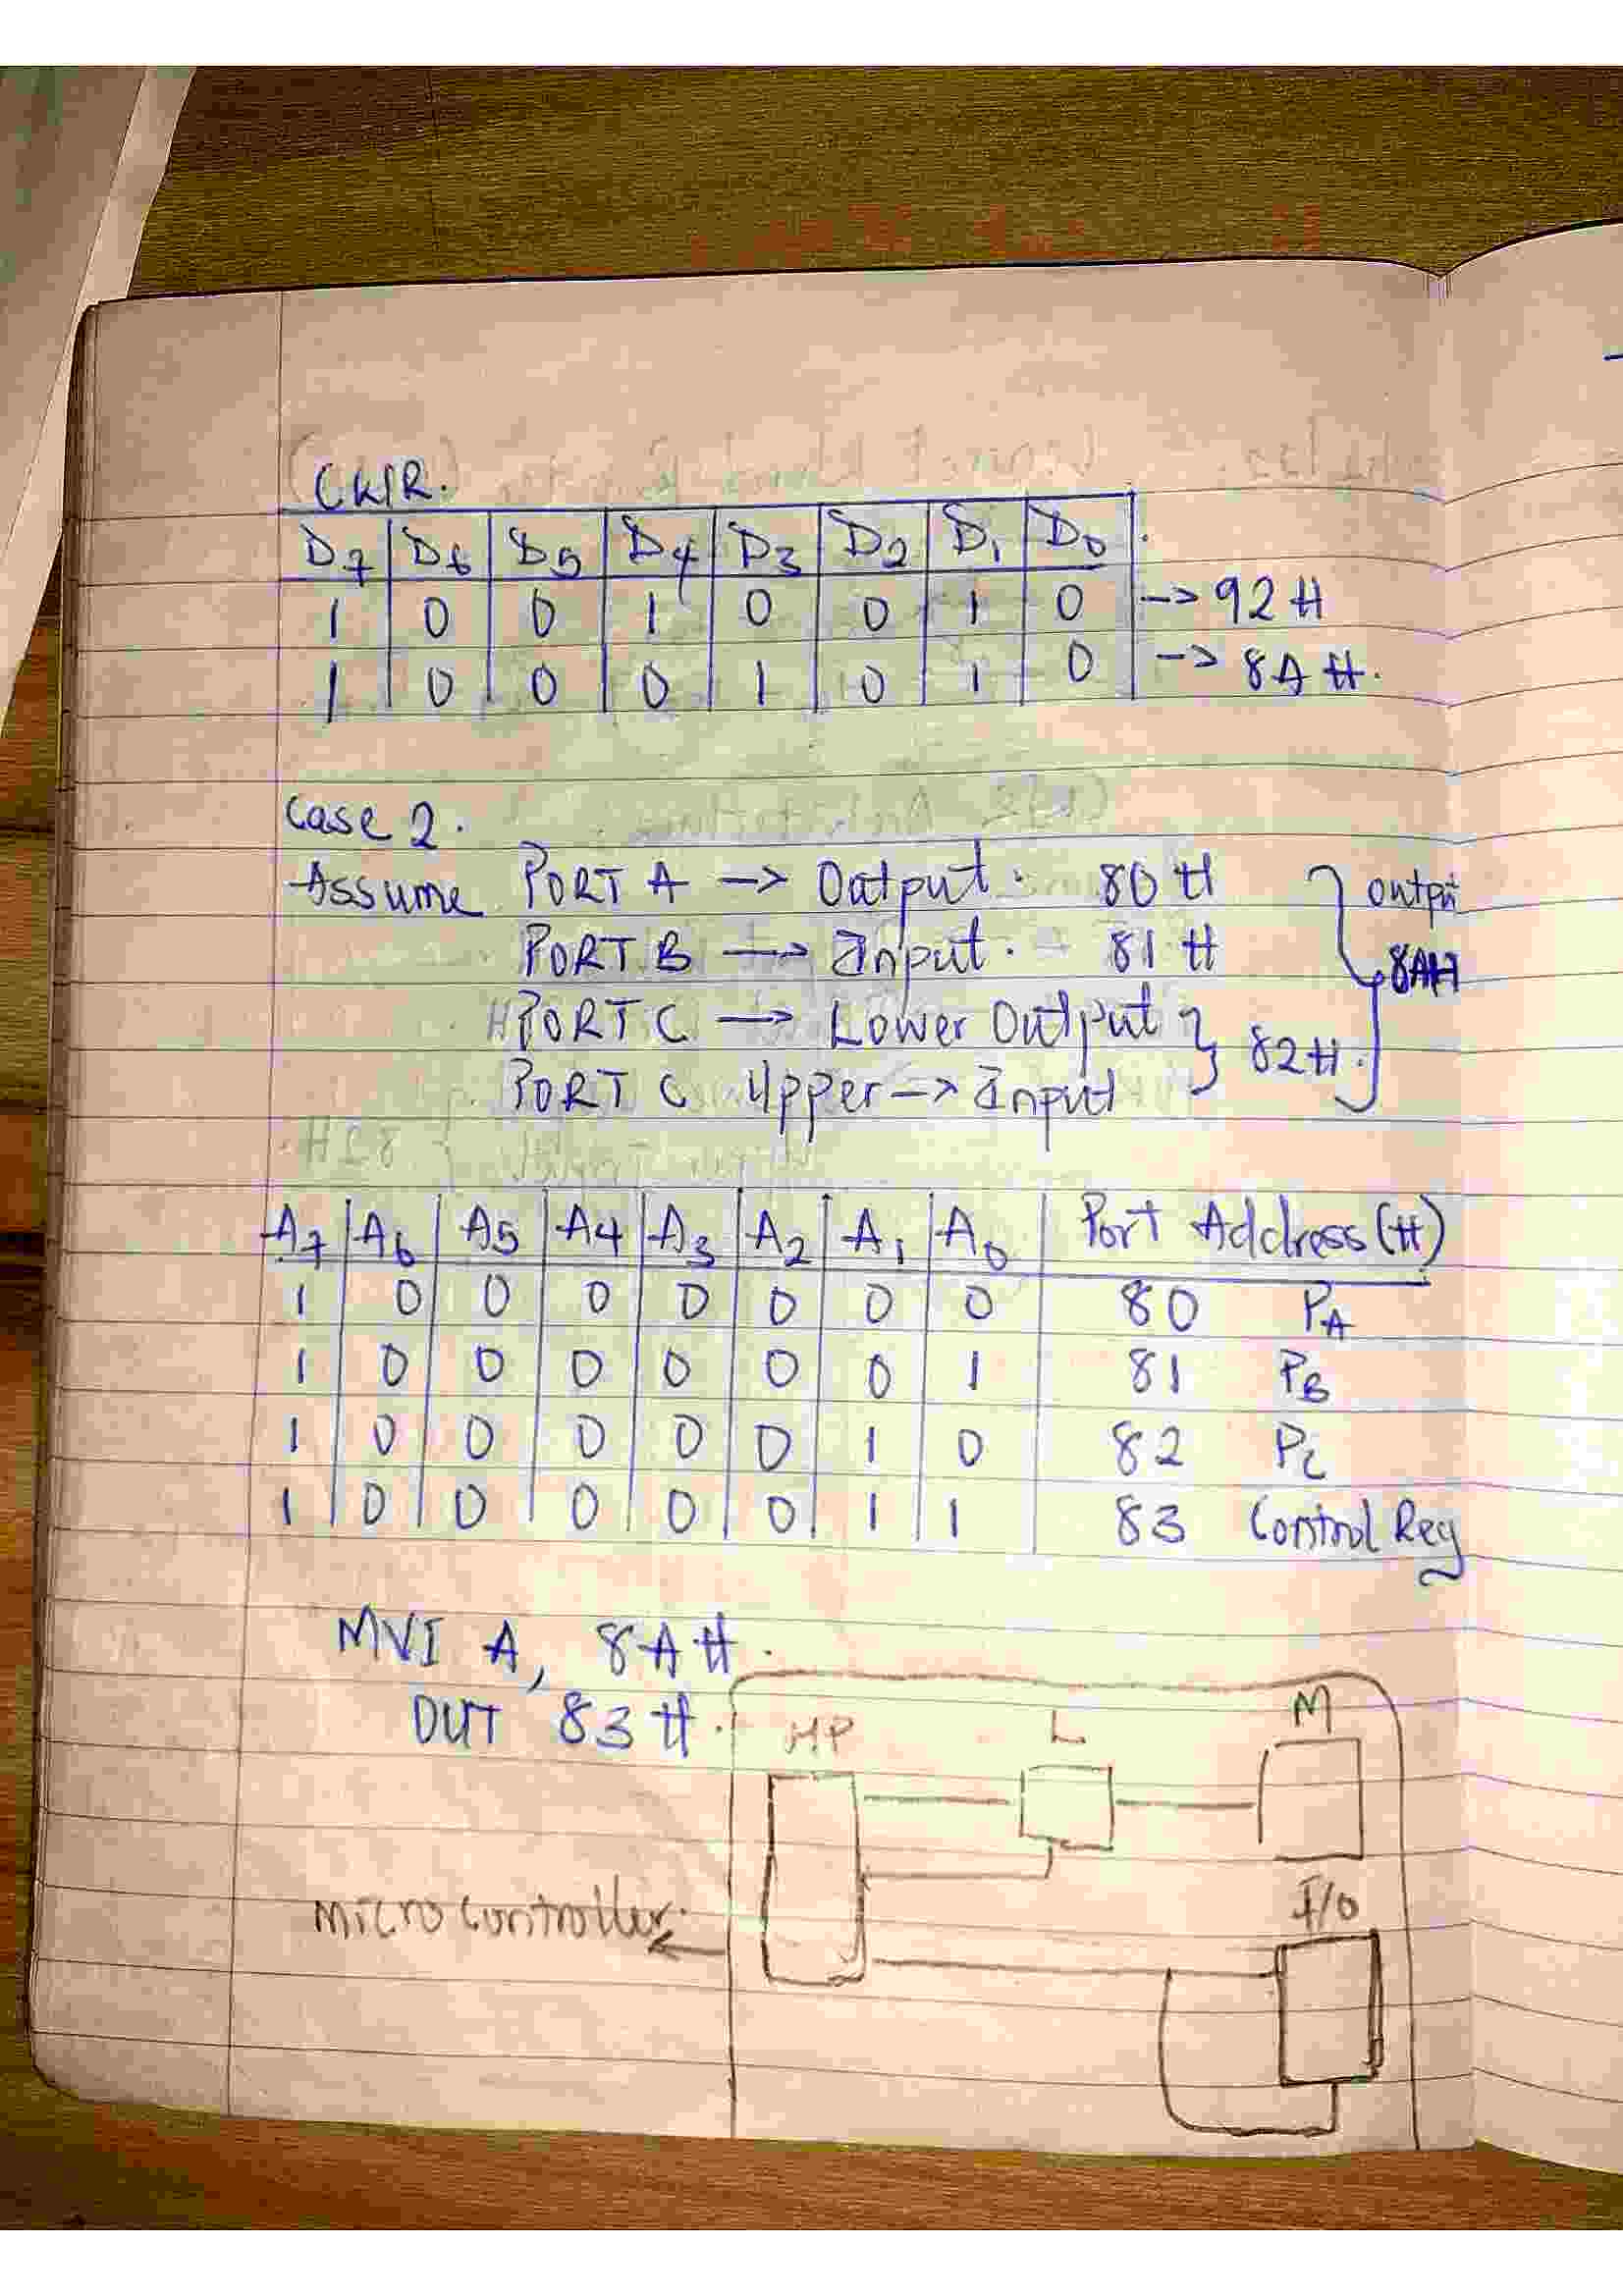 CWR.
D7 D6 D5 D4 D3 D2 D1 D0
1 0 0 1 0 0 1 0 -> 92H
1 0 0 0 1 0 1 0 -> 8AH.
Case 2.
Assume PORT A -> Output. 80H
PORT B -> Input. 81H
PORT C -> Lower Output
PORT C Upper -> Input
} 82H.
Outpu
8AH
A7 A6 A5 A4 A3 A2 A1 A0 Port Address (H)
1 0 0 0 0 0 0 0 80 PA
1 0 0 0 0 0 0 1 81 PB
1 0 0 0 0 0 1 0 82 PC
1 0 0 0 0 0 1 1 83 Control Reg
MVI A, 8AH.
OUT 83H.
MP L M
I/O
Microcontroller.